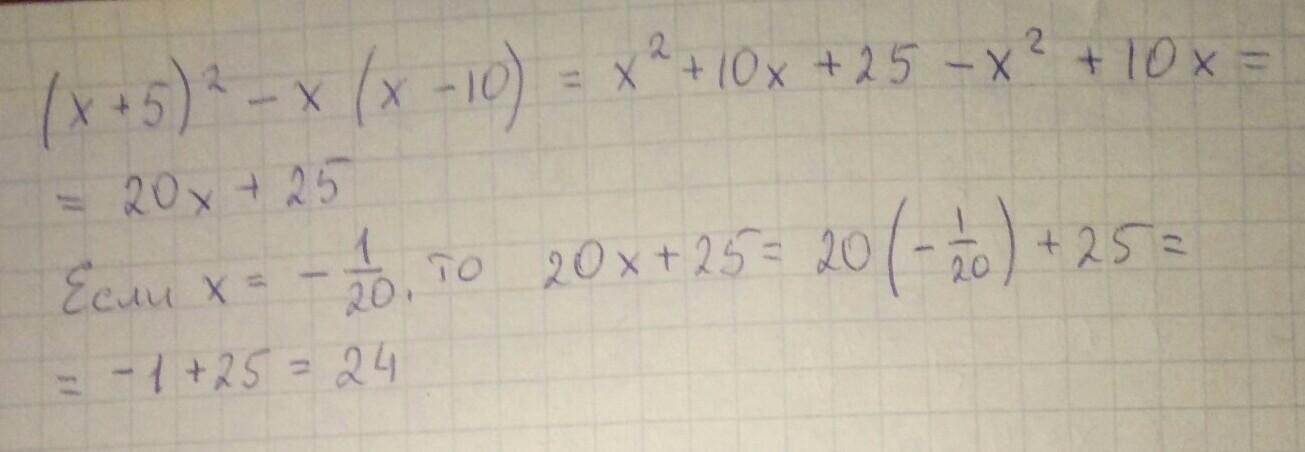 (x+5)² - x (x-10) = x² + 10x + 25 - x² + 10x =
= 20x + 25
Если x = - 1/20, то 20x + 25 = 20(- 1/20) + 25 =
= -1 + 25 = 24